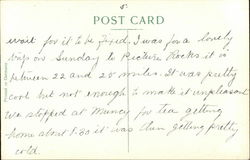 5
POST CARD
wait for it to be fixed. I was for a lovely
trip on Sunday to Picture Rocks it is
between 22 and 25 miles. It was pretty
cool but not enough to make it unpleasant
we stopped at Muncy for tea getting
home about 8-30 it was then getting pretty
cold